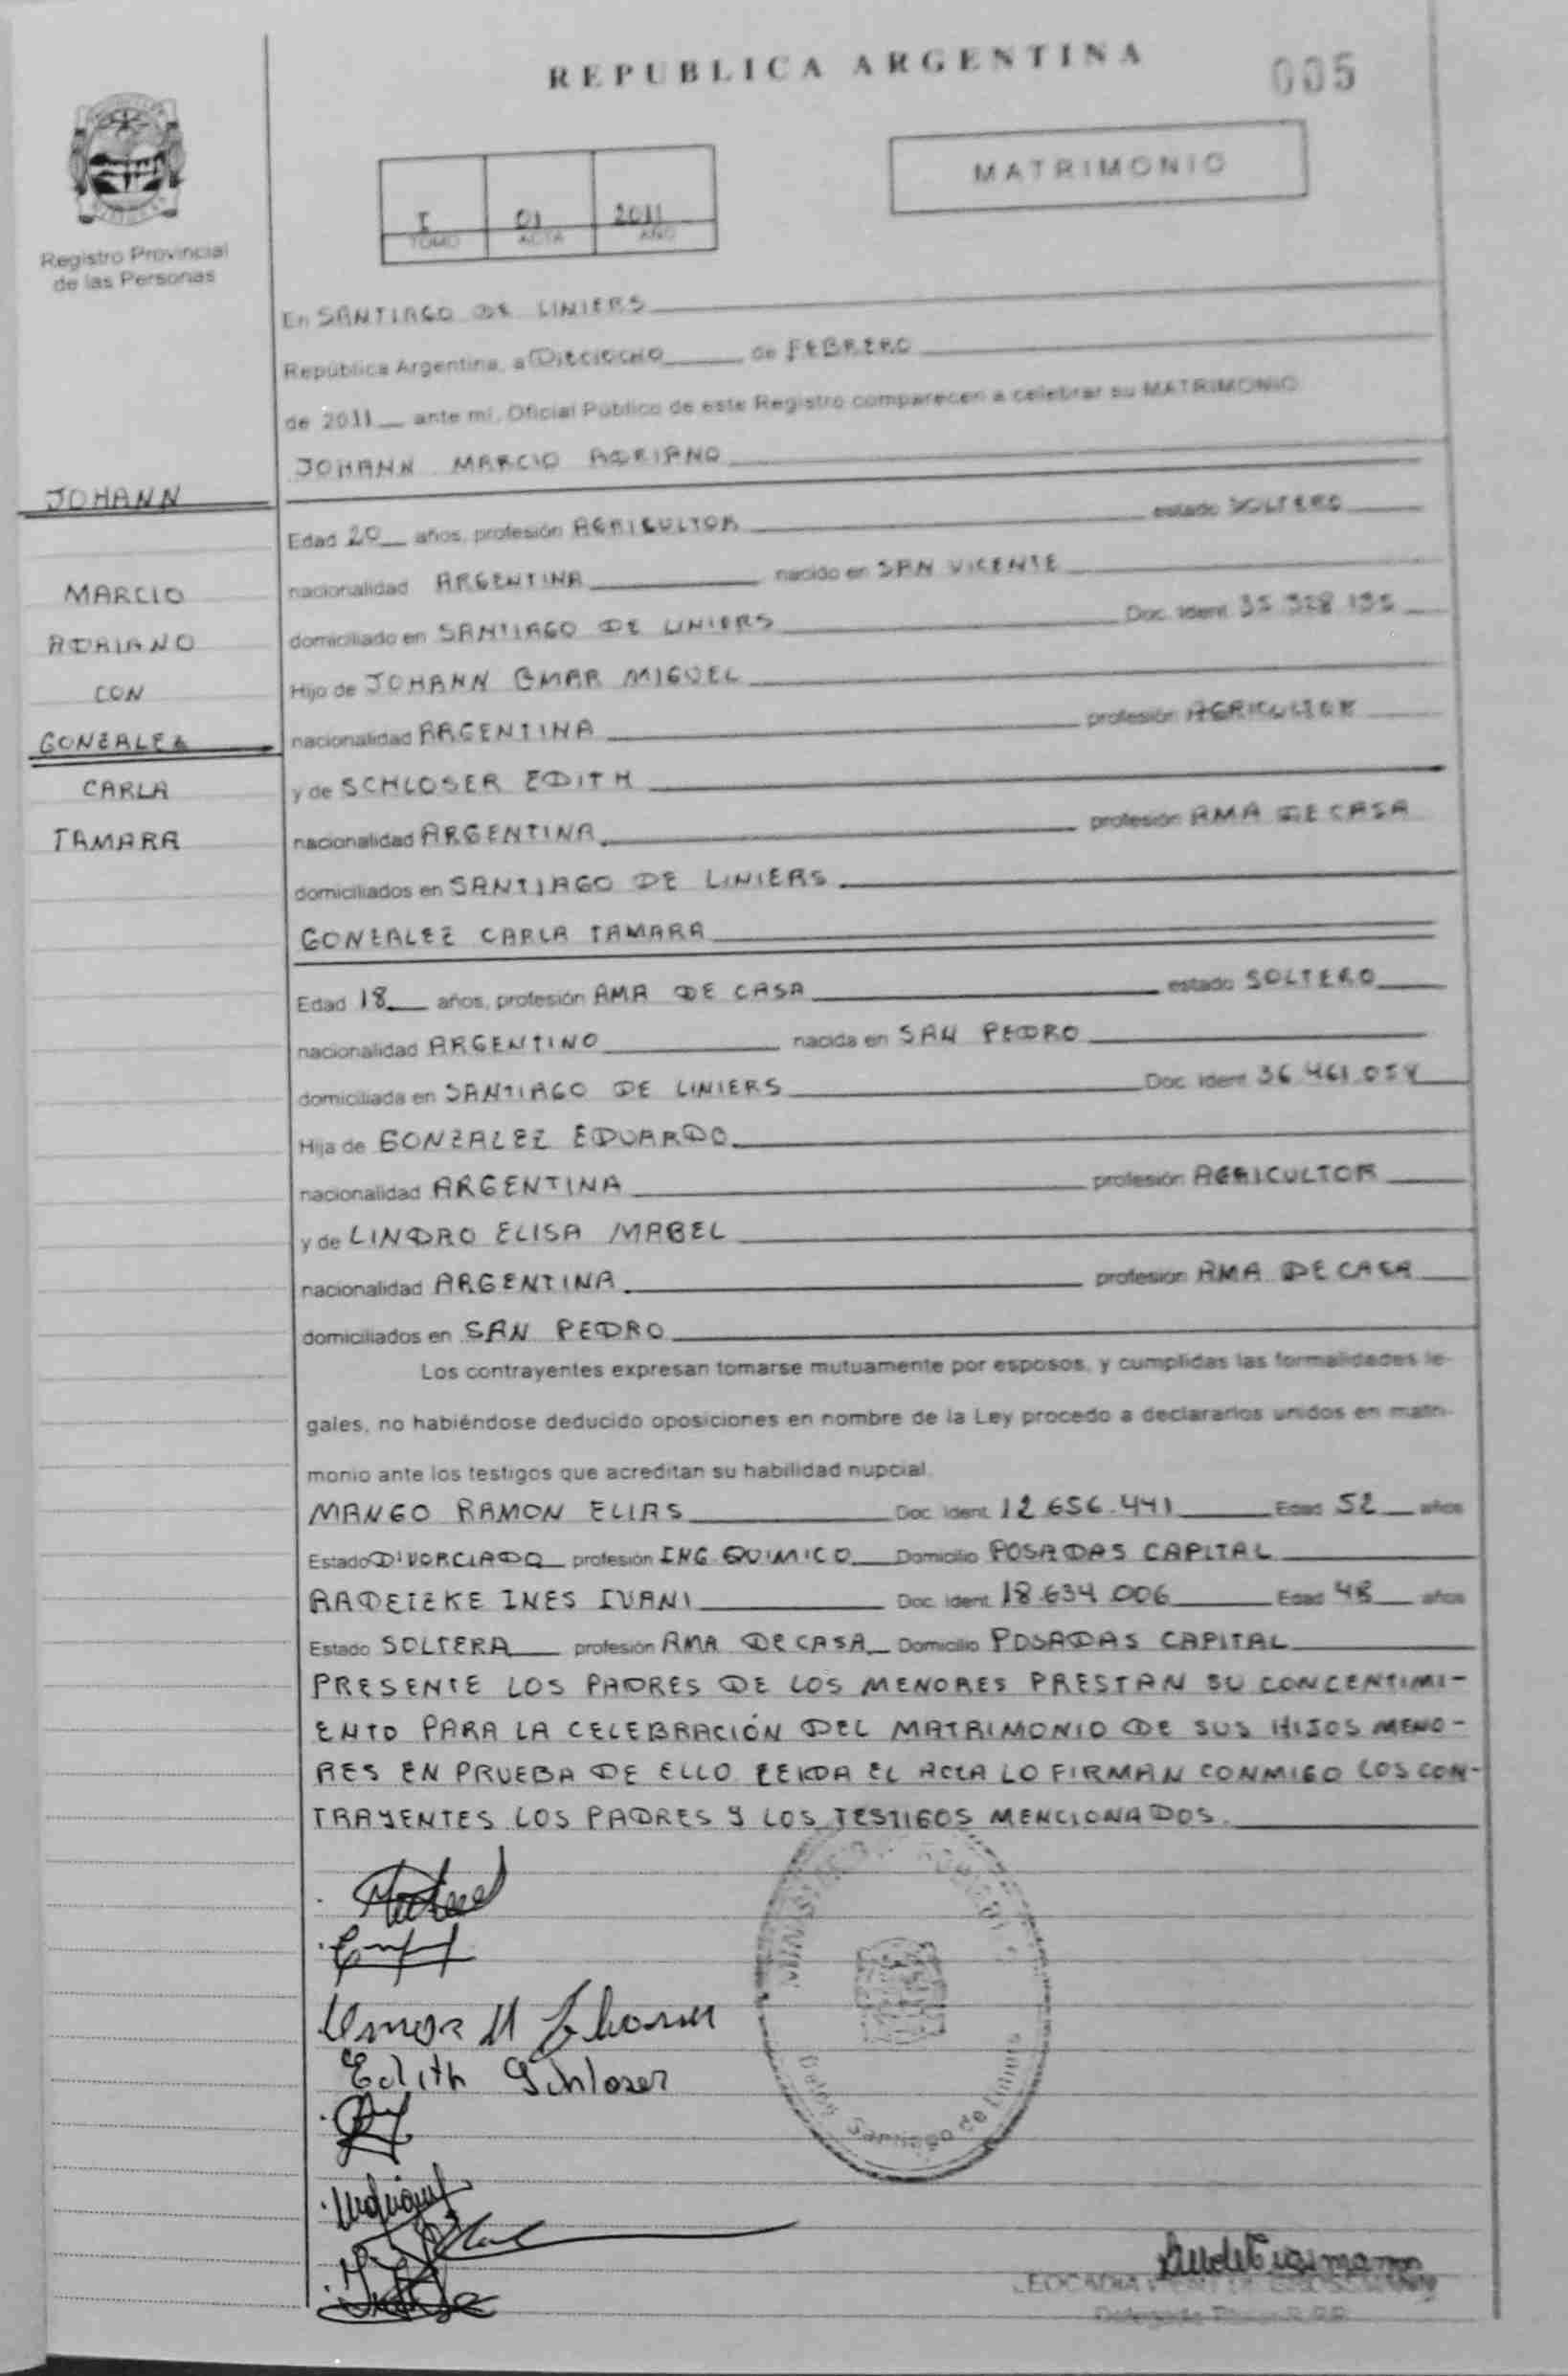 REPUBLICA ARGENTINA
005
MATRIMONIO
I 01 2011
TOMO ACTA AÑO
Registro Provincial
de las Personas
En SANTIAGO DE LINIERS
República Argentina, a DIECIOCHO de FEBRERO
de 2011 ante mi, Oficial Público de este Registro comparecen a celebrar su MATRIMONIO
JOHANN MARCIO ADRIANO
JOHANN
MARCIO
ADRIANO
CON
GONZALEZ
CARLA
TAMARA
Edad 20 años, profesión AGRICULTOR estado SOLTERO
nacionalidad ARGENTINA nacido en SAN VICENTE
domiciliado en SANTIAGO DE LINIERS Doc. Ident. 35.328.135
Hijo de JOHANN OMAR MIGUEL
nacionalidad ARGENTINA profesión AGRICULTOR
y de SCHLOSER EDITH
nacionalidad ARGENTINA profesión AMA DE CASA
domiciliados en SANTIAGO DE LINIERS
GONZALEZ CARLA TAMARA
Edad 18 años, profesión AMA DE CASA estado SOLTERO
nacionalidad ARGENTINO nacida en SAN PEDRO
domiciliada en SANTIAGO DE LINIERS Doc. Ident.
Hija de GONZALEZ EDUARDO
nacionalidad ARGENTINA profesión AGRICULTOR
y de LINDRO ELISA MABEL
nacionalidad ARGENTINA profesión AMA DE CASA
domiciliados en SAN PEDRO
Los contrayentes expresan tomarse mutuamente por esposos, y cumplidas las formalidades le-
gales, no habiéndose deducido oposiciones en nombre de la Ley procedo a declararlos unidos en matri-
monio ante los testigos que acreditan su habilidad nupcial.
MANGO RAMON ELIAS Doc. Ident. 12.656.441 Edad 52 años
Estado DIVORCIADO profesión ING. QUIMICO Domicilio POSADAS CAPITAL
RADEIEKE INES IVANI Doc. Ident. 18.634.006 Edad 48 años
Estado SOLTERA profesión AMA DE CASA Domicilio POSADAS CAPITAL
PRESENTE LOS PADRES DE LOS MENORES PRESTAN SU CONCENTIMI-
ENTO PARA LA CELEBRACIÓN DEL MATRIMONIO DE SUS HIJOS MENO-
RES EN PRUEBA DE ELLO LEIDA EL ACTA LO FIRMAN CONMIGO LOS CON-
TRAYENTES LOS PADRES Y LOS TESTIGOS MENCIONADOS.
Edith Schloser
Santiago de Liniers